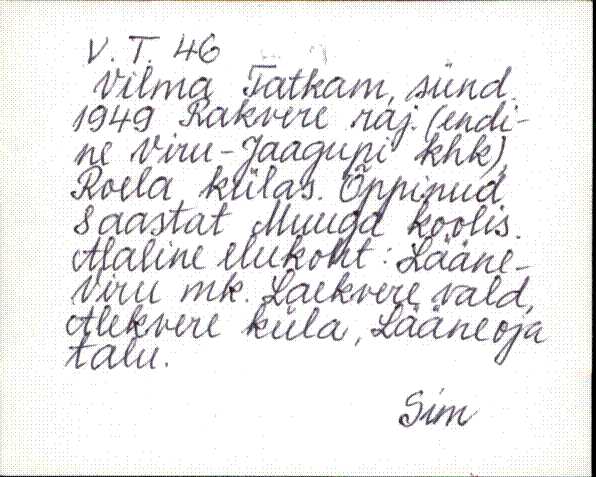 V. T. 46
Vilma Tatkam, sünd.
1949 Rakvere raj. (endi-
ne Viru-Jaagupi khk),
Roela külas. Õppinud
8 aastat Muuga koolis.
Alaline elukoht: Lääne-
Viru mk. Laekvere vald,
Alekvere küla, Lääneoja
talu.
Sim